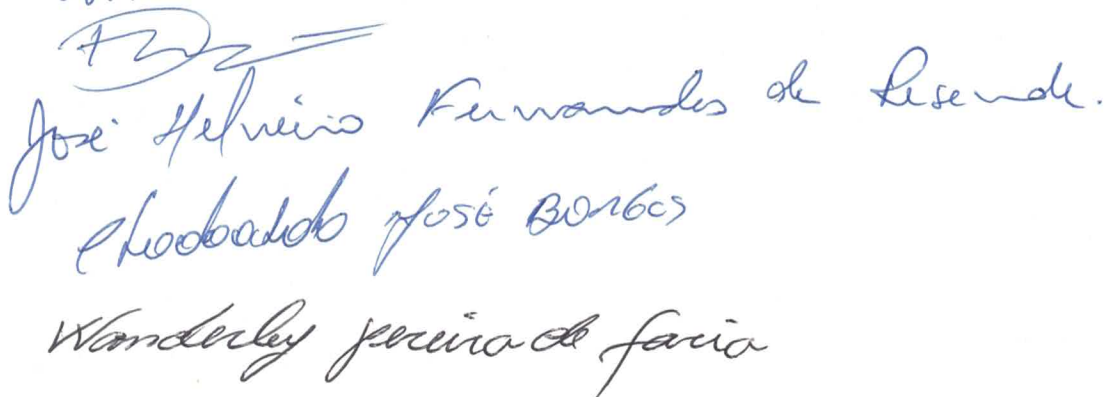 José Helvécio Fernandes de Resende.
José BORGES
Wanderley pereira de faria